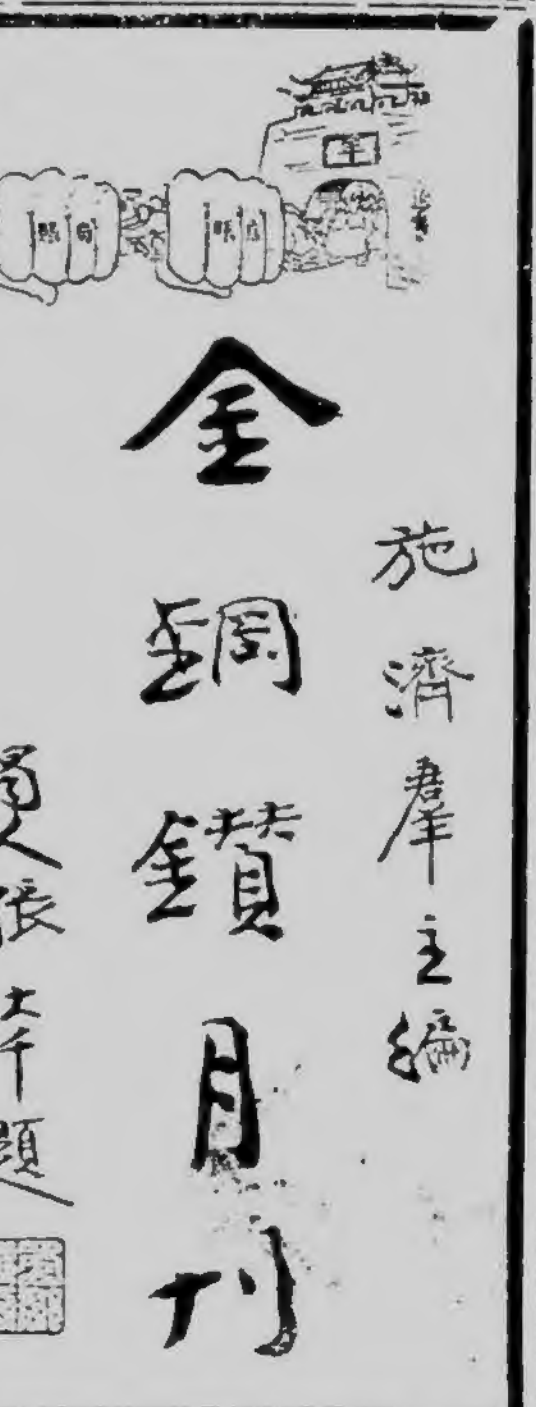 施濟羣主編
金鋼鑚月刊
蜀人張大千題